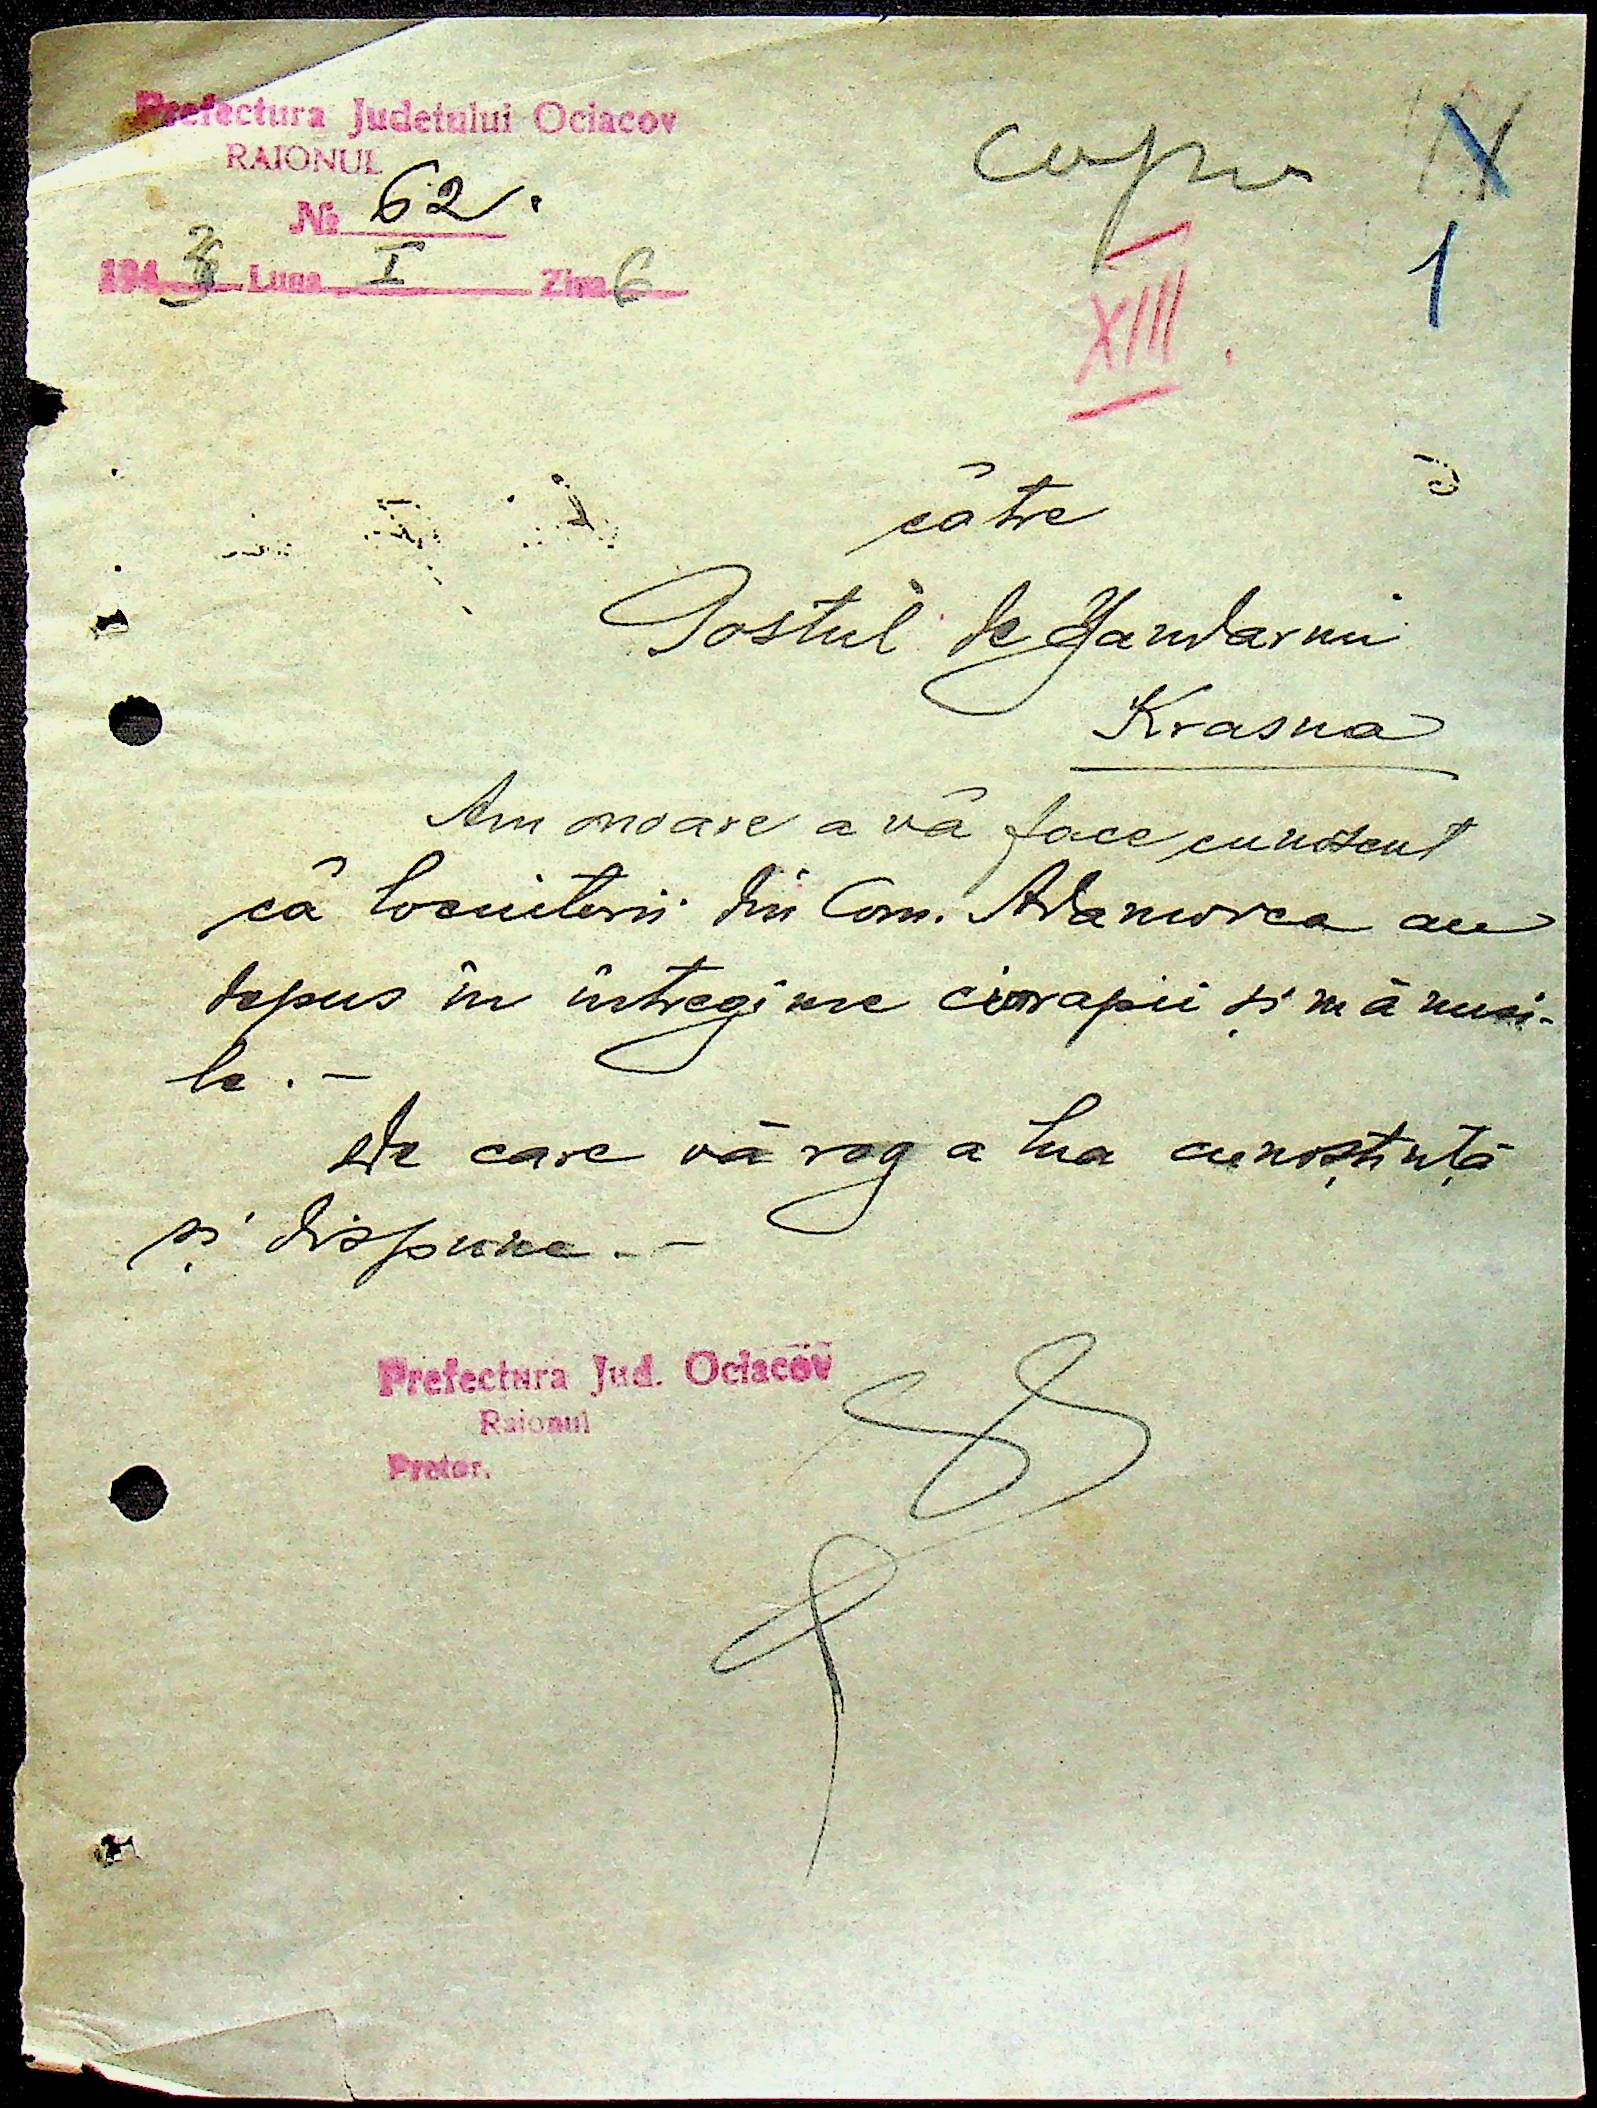 Prefectura Judetului Ociacov
RAIONUL
№ 62.
1943 Luna I Ziua 6
XIII.
1
către
Postul de Jandarmi
Krasna
Am onoare a vă face cunoscut
că locuitorii din Com. Adamovca au
depus în întregime ciorapii și mânusi-
le. –
De care vă rog a lua cunoștință
și dispune. –
Prefectura Jud. Ociacov
Raionul
Pretor.